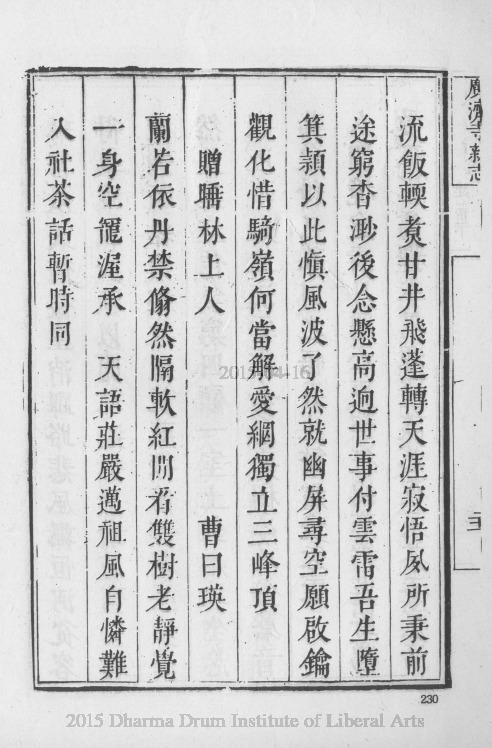 廣濟寺新志
流飯輭煑甘井飛蓬轉天涯寂悟夙所秉前
途窮杳渺後念懸高逈世事付雲雷吾生墮
箕潁以此愼風波了然就幽屏尋空願啟鑰
觀化惜騎嶺何當解愛網獨立三峰頂
贈䏊林上人 曹曰瑛
蘭若依丹禁翛然隔軟紅閒看雙樹老靜覺
一身空寵渥承 天語莊嚴邁祖風自憐難
入社茶話暫時同
二十
230
2015-04-16
2015 Dharma Drum Institute of Liberal Arts